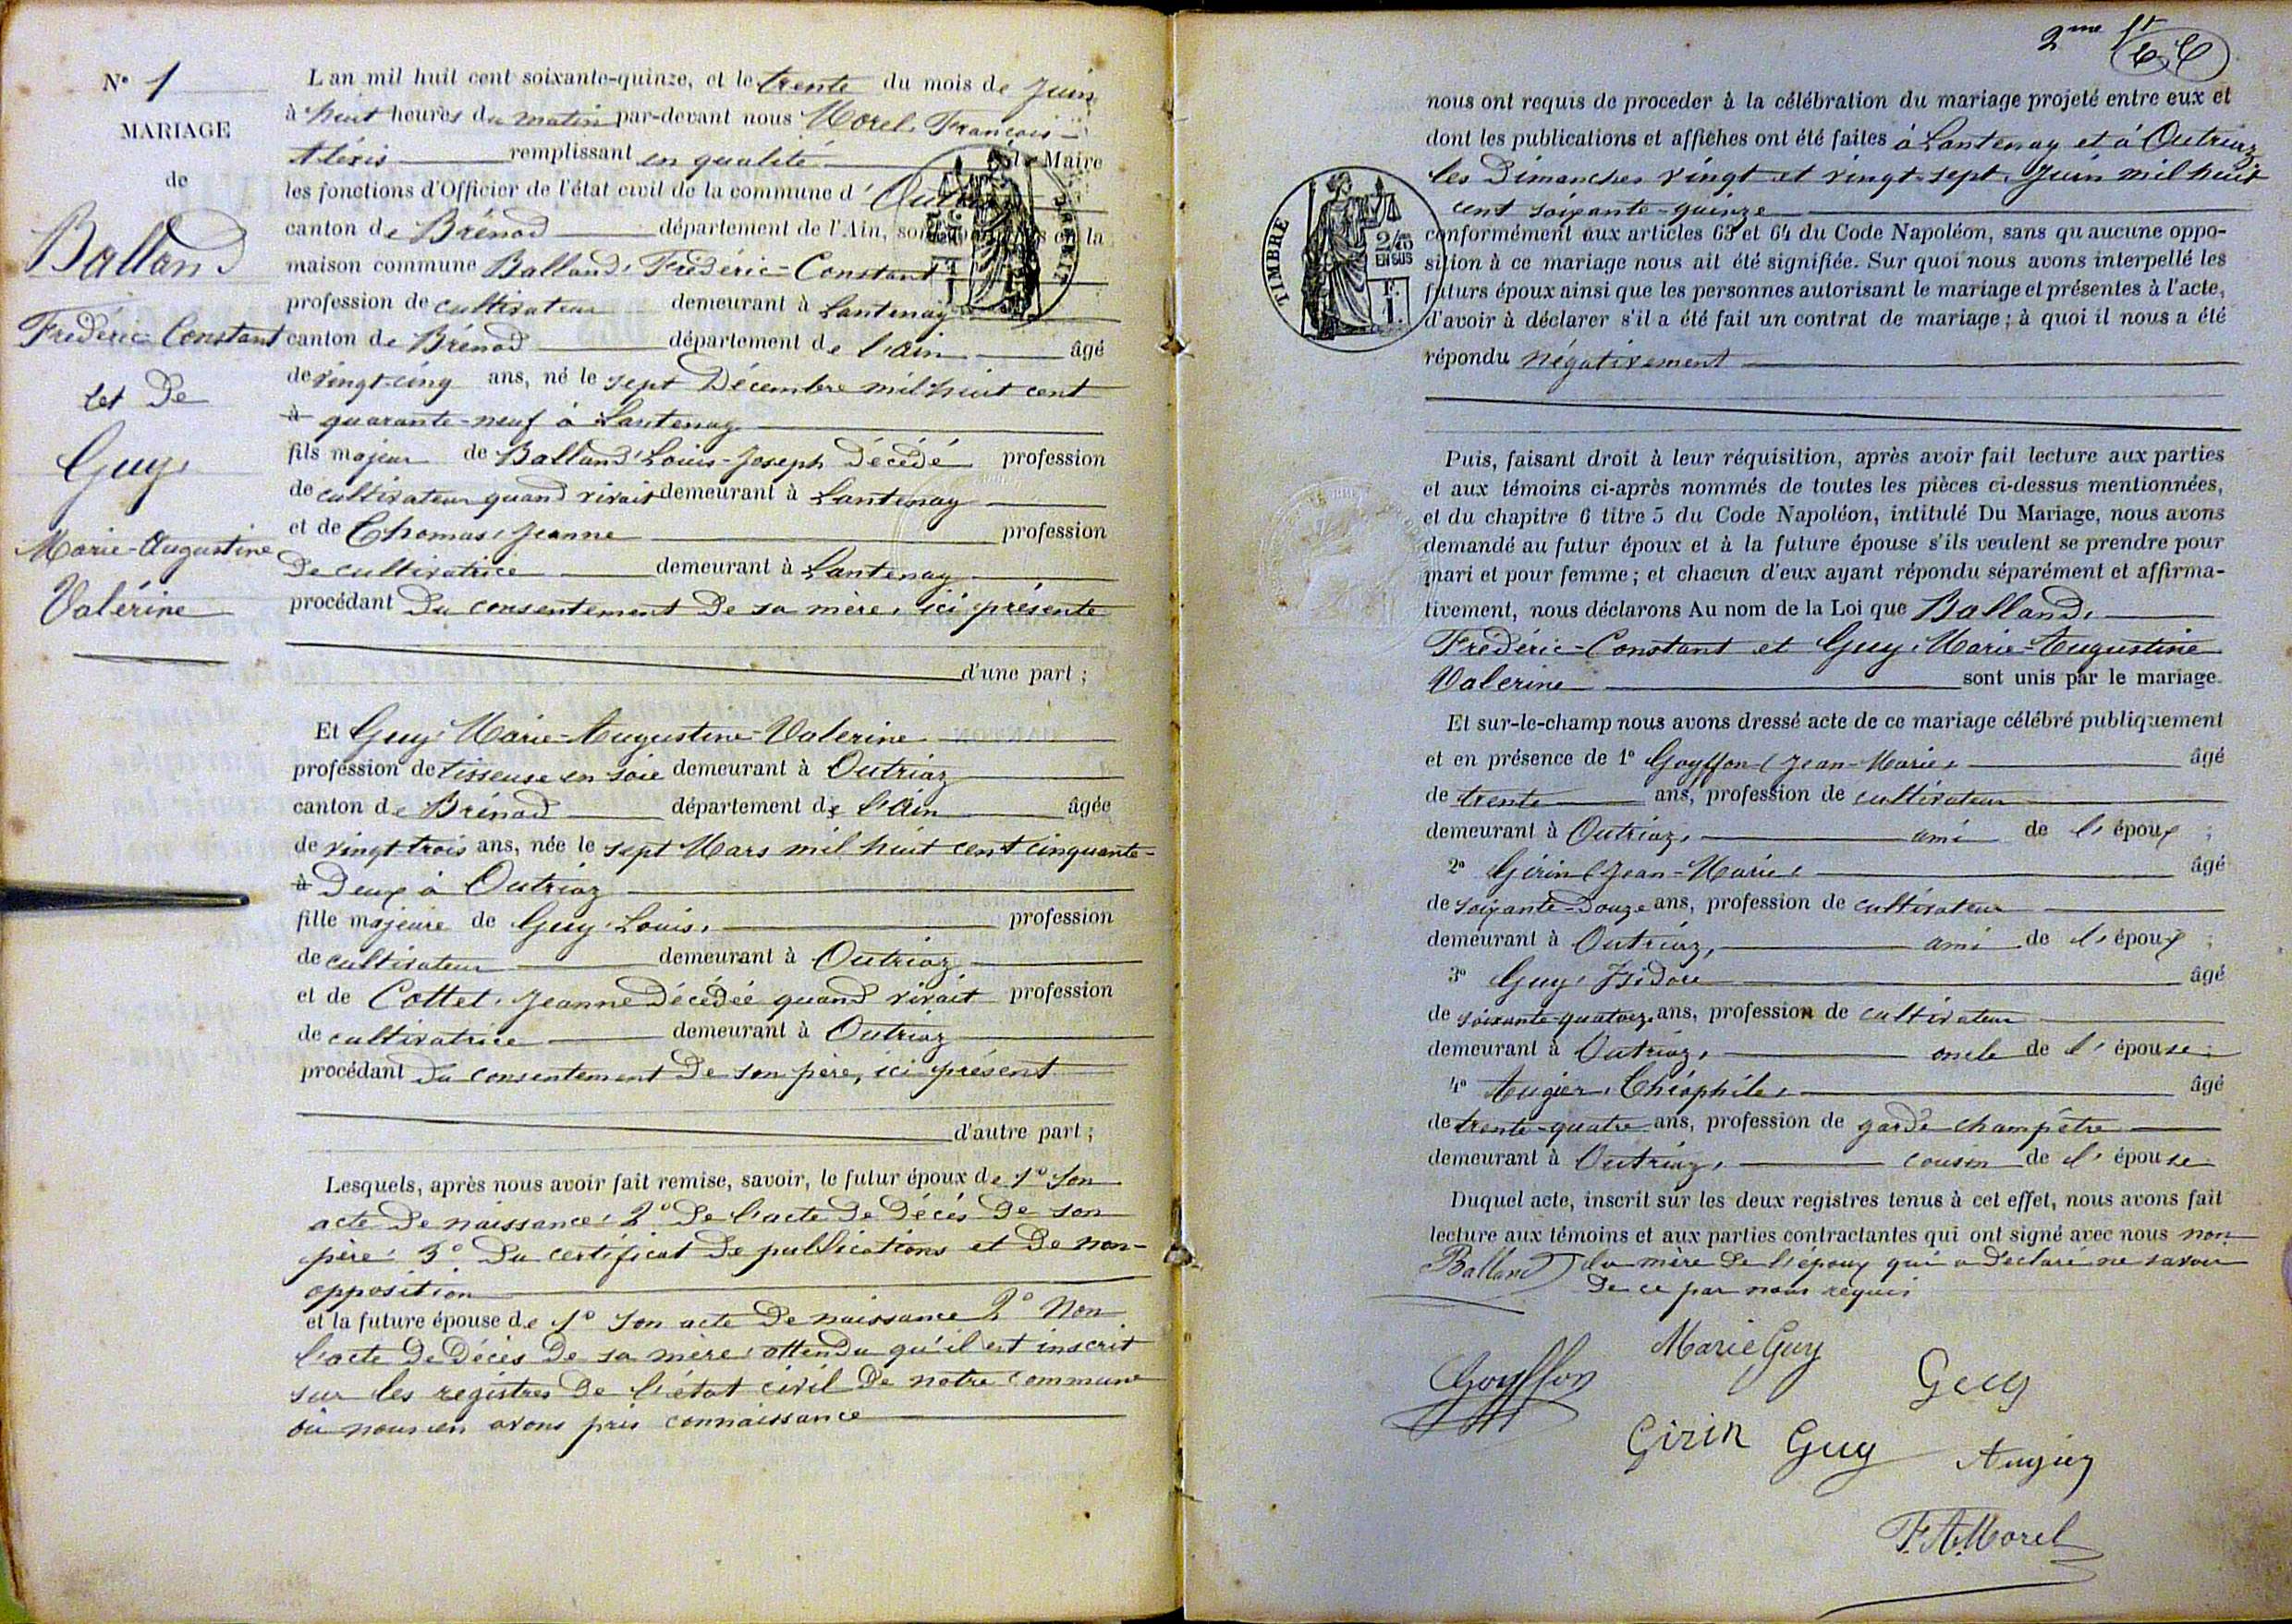 N° 1
MARIAGE
de
Balland
Frédéric-Constant
et De
Guy,
Marie-Augustine
Valérine
L'an mil huit cent soixante-quinze, et le trente du mois de Juin
à huit heures du matin par-devant nous Morel, François-
Aléxis remplissant en qualité de Maire
les fonctions d'Officier de l'état civil de la commune d'
canton de Brénod département de l'Ain, en la
maison commune Balland, Frédéric-Constant
profession de cultivateur demeurant à Lantenay
canton de Brénod département de l'Ain âgé
de vingt-cinq ans, né le sept Décembre mil huit cent
à quarante-neuf à Lantenay
fils majeur de Balland, Louis-Joseph Décédé profession
de cultivateur quand vivait demeurant à Lantenay
et de Thomas, Jeanne profession
De cultivatrice demeurant à Lantenay
procédant Du consentement De sa mère, ici présente
d'une part ;
Et Guy, Marie-Augustine-Valerine
profession de tisseuse en soie demeurant à Outriaz
canton de Brénod département de l'Ain âgée
de vingt-trois ans, née le sept Mars mil huit cent cinquante-
à Deux à Outriaz
fille majeure de Guy, Louis, profession
de cultivateur demeurant à Outriaz
et de Cottet, Jeanne Décédée quand vivait profession
de cultivatrice demeurant à Outriaz
procédant Du consentement De son père, ici présent
d'autre part ;
Lesquels, après nous avoir fait remise, savoir, le futur époux de 1° Son
acte De naissance, 2° De l'acte De Décès De son
père, 3° Du certificat De publications et De non-
opposition
et la future épouse de 1° Son acte De naissance 2° Non
l'acte De Décès De sa mère, attendu qu'il est inscrit
sur les registres De l'état civil De notre commune
où nous en avons pris connaissance
2me
nous ont requis de procéder à la célébration du mariage projeté entre eux et
dont les publications et affiches ont été faites à Lantenay et à Outriaz
les Dimanches vingt et vingt-sept Juin mil huit
cent soixante-quinze
TIMBRE
2/10 EN SUS
F. 1.
conformément aux articles 63 et 64 du Code Napoléon, sans qu'aucune oppo-
sition à ce mariage nous ait été signifiée. Sur quoi nous avons interpellé les
futurs époux ainsi que les personnes autorisant le mariage et présentes à l'acte,
d'avoir à déclarer s'il a été fait un contrat de mariage ; à quoi il nous a été
répondu négativement
Puis, faisant droit à leur réquisition, après avoir fait lecture aux parties
et aux témoins ci-après nommés de toutes les pièces ci-dessus mentionnées,
et du chapitre 6 titre 5 du Code Napoléon, intitulé Du Mariage, nous avons
demandé au futur époux et à la future épouse s'ils veulent se prendre pour
mari et pour femme ; et chacun d'eux ayant répondu séparément et affirma-
tivement, nous déclarons Au nom de la Loi que Balland,
Frédéric-Constant et Guy, Marie-Augustine
Valerine sont unis par le mariage.
Et sur-le-champ nous avons dressé acte de ce mariage célébré publiquement
et en présence de 1° Goyffon (Jean-Marie, âgé
de trente ans, profession de cultivateur
demeurant à Outriaz, ami de l'époux ;
2° Girin (Jean-Marie, âgé
de soixante-Douze ans, profession de cultivateur
demeurant à Outriaz, ami de l'époux ;
3° Guy, Isidore âgé
de soixante-quatorze ans, profession de cultivateur
demeurant à Outriaz, oncle de l'épouse ;
4° Augier, Théophile, âgé
de trente-quatre ans, profession de garde champêtre
demeurant à Outriaz, cousin de l'épouse
Duquel acte, inscrit sur les deux registres tenus à cet effet, nous avons fait
lecture aux témoins et aux parties contractantes qui ont signé avec nous non
Balland la mère De l'époux qui a Declaré ne savoir
De ce par nous requis
Marie Guy
Goyffon
Guy
Girin Guy Augier
F. A. Morel